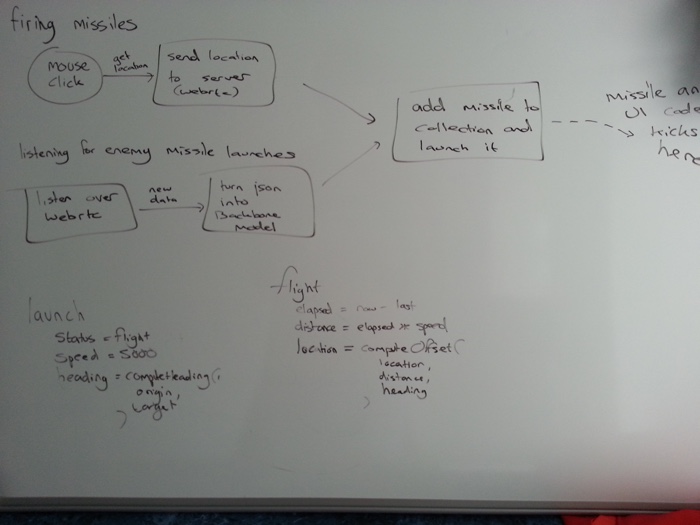 firing missiles
mouse
click
get
location
send location
to server
(webrtc)
add missile to
collection and
launch it
missile an
UI code
kicks
here
listening for enemy missile launches
listen over
webrtc
new
data
turn json
into
Backbone
Model
launch
status = flight
speed = 5000
heading = computeHeading(
origin,
target
)
flight
elapsed = now - last
distance = elapsed * speed
location = computeOffset(
location,
distance,
heading
)